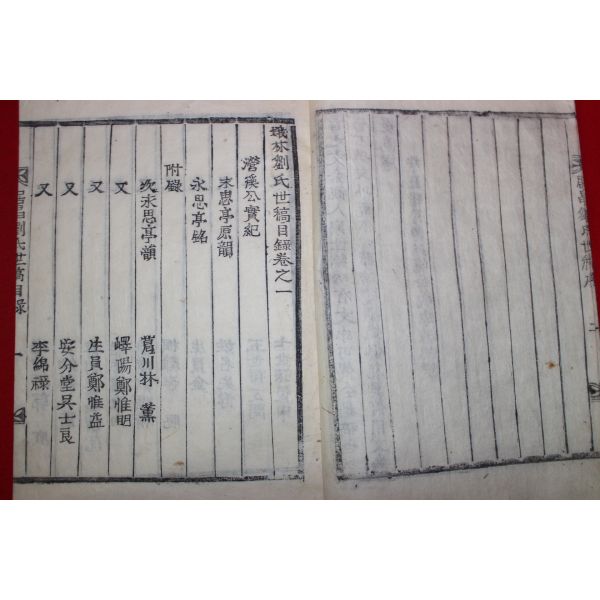 林劉氏世稿目錄卷之一
濳溪公實紀
永思亭原韻
永思亭銘
附錄
次永思亭韻 葛川林薰
又 嶧陽鄭惟明
又 生員鄭惟益
又 安分堂吳士良
又 李綿祿
劉氏世稿目錄 一
劉氏世稿序 二